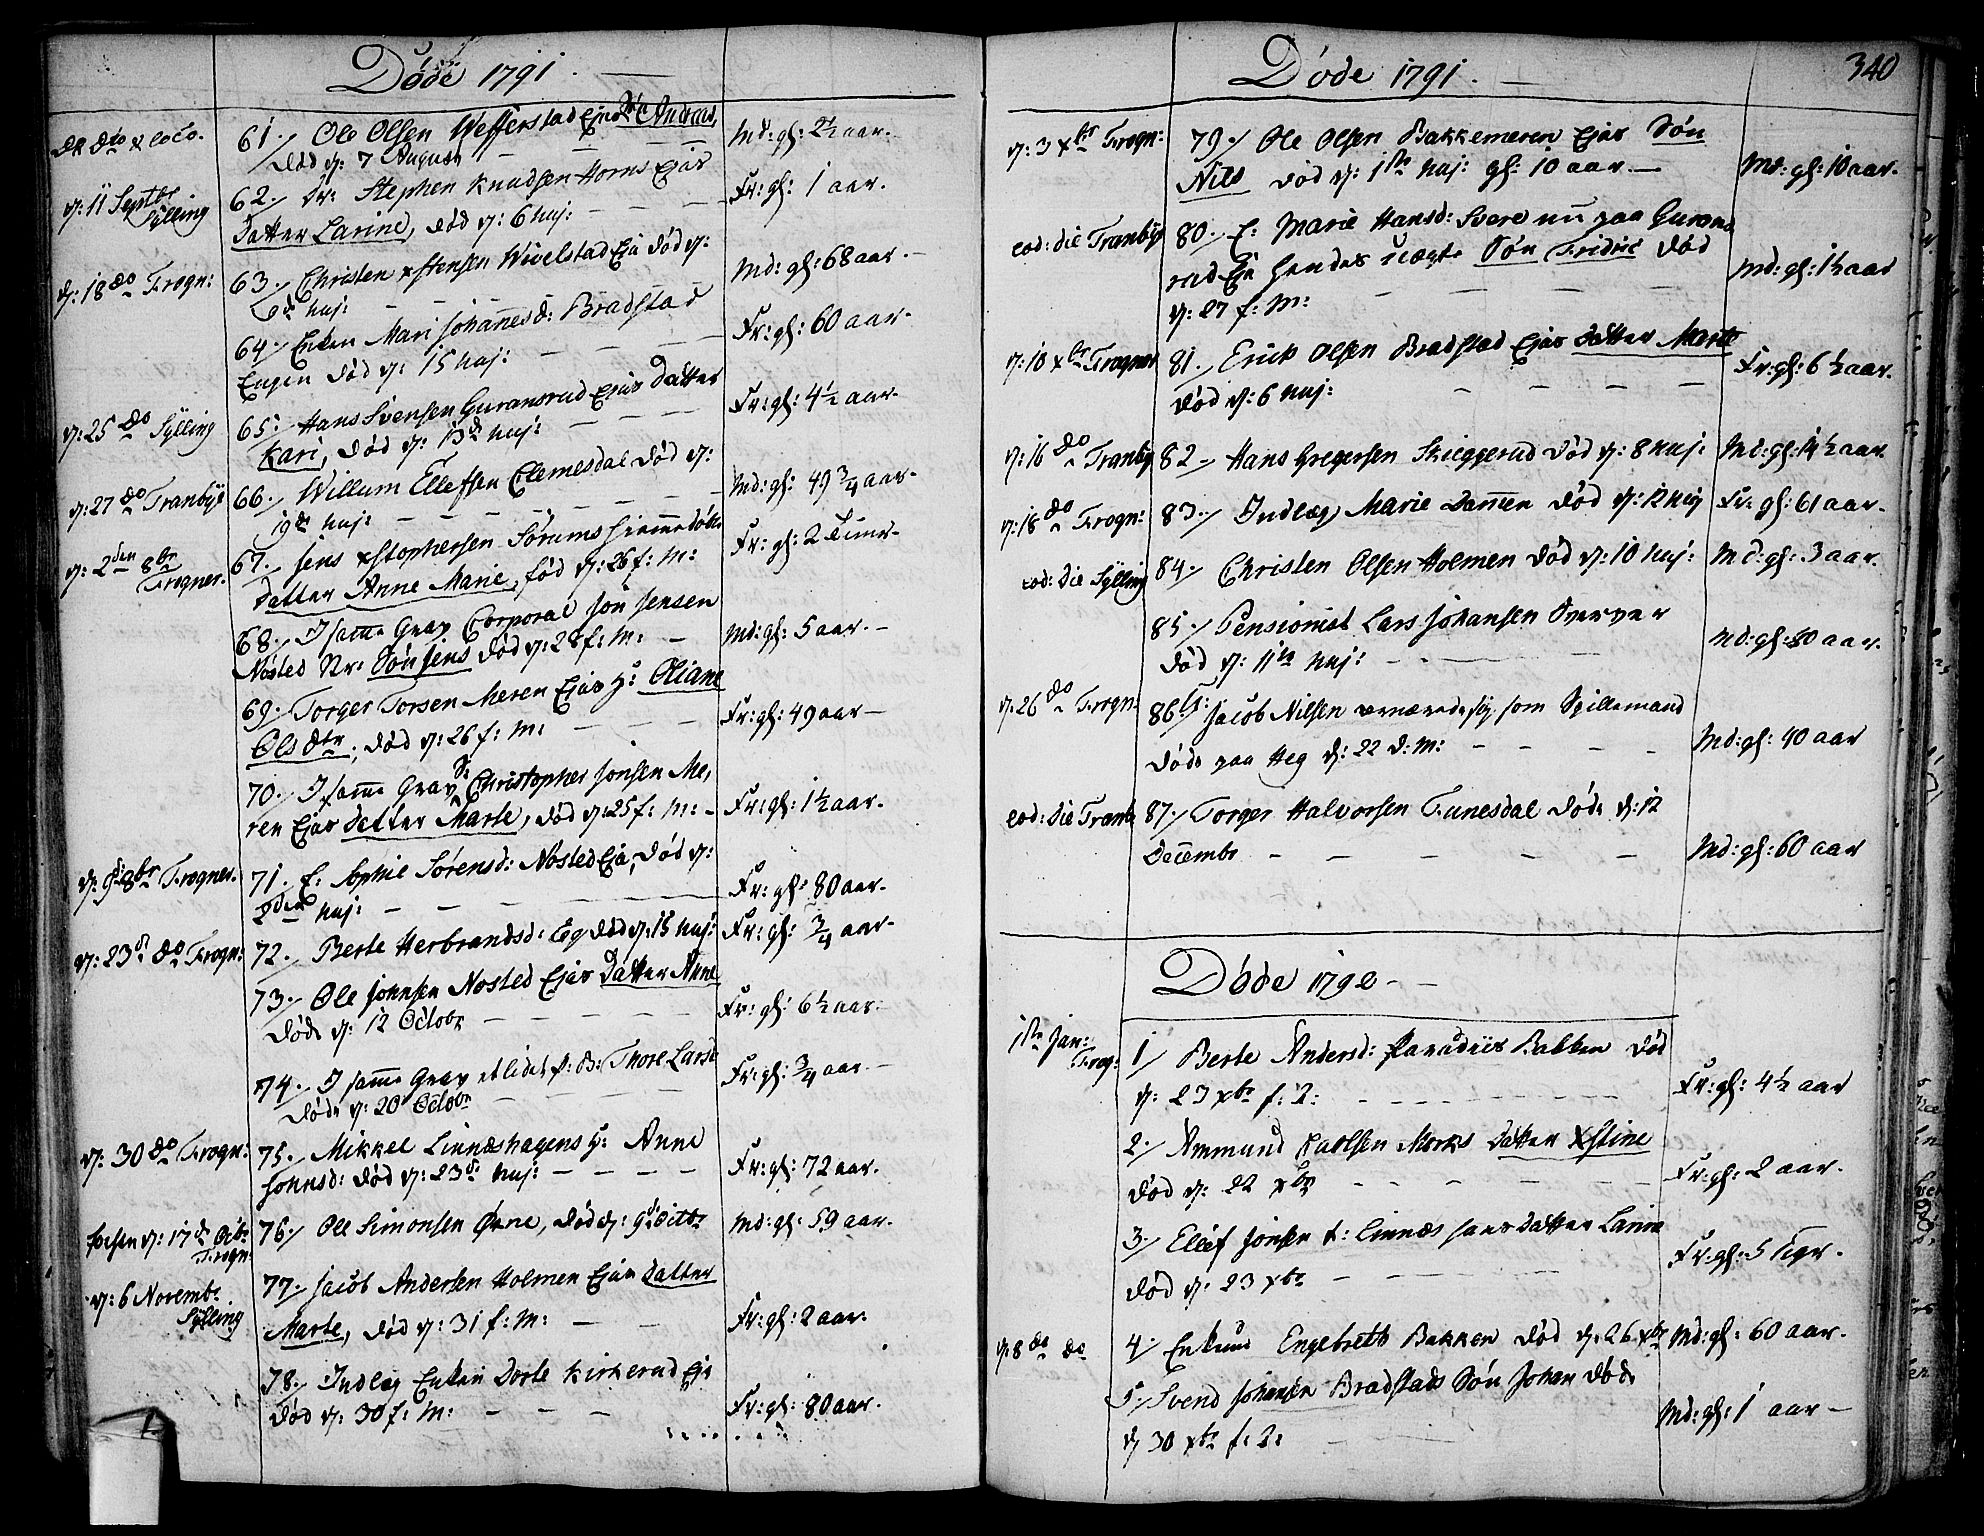 Døde 1791.
61. Ole Olsen Wefferstad Ejes Søn Andreas,
død d: 7 August
Md: gl: 2½ aar.
d: 11 Septbr
Sylling
62. Sr: Stephen Knudsen Horns Ejes
Datter Larine, død d: 6 huj:
Fr: gl: 1 aar.
d: 18 do Frogn:
63. Christen xstensen Wivelstad Eje død d:
6te huj:
Md: gl: 68 aar.
64. Enken Mari Johannesd: Bradstad
Engen død d: 15 huj:
Fr: gl: 60 aar.
d: 25 do Sylling
65. Hans Svensen Guranerud Ejes Datter
Kari, død d: 13de huj:
Fr: gl: 4½ aar.
d: 27 do Tranbye
66. Willum Ellefsen Clemesdal død d:
19de huj:
Md: gl: 49 ¾ aar.
d: 2den 8br
Frogner.
67. Jens xstophersen Sørums hiemedøbte
Datter Anne Marie, fød d: 26 f: M:
Fr: gl: 2 Timer.
68. I samme Grav Corporal Jon Jensen
Nøsted Nr: Søn Jens død d: 28 f: M:
Md: gl: 5 aar.
69. Torger Torsen Meren Ejes H: Oliane
Ols dtr, død d: 26 f: M:
Fr: gl: 49 aar
70. I samme Grav Christopher Jonsen Me,
ren Ejes Datter Marte, død d: 25 f: M:
Fr: gl: 1½ aar.
d: 9de 8br Frogner.
71. E: Sophie Sørensd: Nøsted Eje, død d:
2den huj:
Fr: gl: 80 aar.
d: 23d do Frogn:
72. Berte Herbrandsd: Eg død d: 15 huj:
Fr: gl: ¾ aar.
73. Ole Johnsen Nøsted Ejes Datter Anne
Døde d: 12 Octobr
Fr: gl: 6½ aar.
74. I samme Grav et lidet f: B: Thore Larsd
Døde d: 20 Octobr
Fr: gl: ¾ aar.
d: 30 do Frogn:
75. Mikkel Linneshagens H: Anne
Jonnsd: død d: 23d huj:
Fr: gl: 72 aar.
d: 17d Octbr
Frogn
76. Ole Simonsen Øvne, død d: 9d ditto
Md: gl: 59 aar.
d: 6 Novembr
Sylling
77. Jacob Andersen Holmen Ejes Datter
Marte, død d: 31 f: M:
Fr: gl: 2 aar.
78. Indlæg Enken Dorte Kirkerud Eje
død d: 30 f: M:
Fr: gl: 80 aar.
340
Døde 1791.
d: 3 xbr Frogn:
79. Ole Olsen Bakkemeren Ejes Søn
Nils død d: 1ste huj: gl: 10 aar
Md: gl: 10 aar.
eod: die Tranbye
80. E: Marie Hansd: Svere nu paa Gurane
rud Eje hendes uægte Søn Fridric død
d: 27 f: M:
Md: gl: 1½ aar
d: 10 xbr Frogner
81. Erich Olsen Bradstad Ejes Datter Marte
død d: 6 huj:
Fr: gl: 6½ aar.
d: 16 do Tranby
82. Hans Gregersen Skieggerud død d: 8 huj:
Md: gl: 14½ aar.
d: 18 do Frogn:
83. Indlæg Marie Dammen død d: 12 huj
Fr: gl: 61 aar.
eod: die Sylling
84. Christen Olsen Holmen død d: 10 huj:
Md: gl: 3 aar.
85. Pensionist Lars Johansen Overver
død d: 11te huj:
Md: gl: 80 aar.
d: 26 do Frogn.
86. Jacob Nilsen ernærede sig som Spillemand
Døde paa Heg d: 22 d: m:
Md: gl: 40 aar
eod: die Tranb
87. Torger Halvorsen Funesdal Døde d: 12
Decembr
Md: gl: 60 aar
Døde 1792
1ste Jan:
Frog:
1. Berte Andersd: Paradiis Bakken død
d: 23 xbr f: A:
Fr: gl: 4½ aar
2. Ammund Karlsen Mørks Datter xstine
død d: 22 xbr
Fr: gl: 2 aar.
3. Ellef Jonsen f: Linnes hans Datter Larine
død d: 23 xbr
Fr: gl: 5 Dgr.
d: 8 do do
4. Enkem Engebreth Bakken død d: 26 xbr
Md: gl: 60 aar.
5. Svend Johansen Bradstads Søn Johan døde
d 30 xbr f: A:
Md: gl: 1 aar